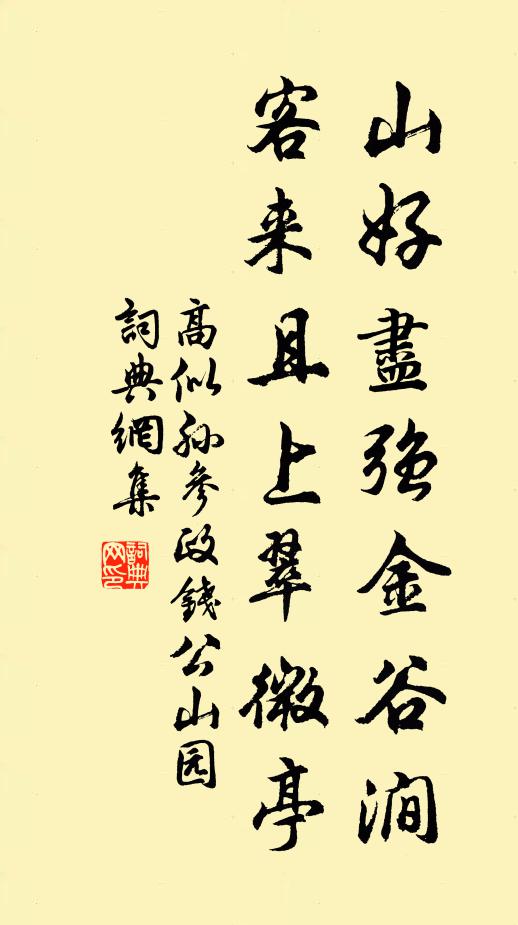 山好盡强金谷澗
客来且上翠微亭
高似孙参政錢公山园
詞典網集
詞典
网印